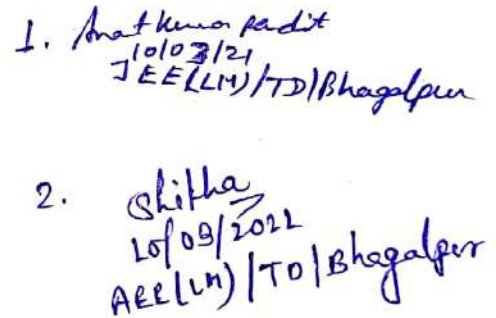 1. Anat kumar pandit
10/03/21
JEE(LM)/TD/Bhagalpur
2. Shikha
10/09/2022
AEE(LM)/TD/Bhagalpur